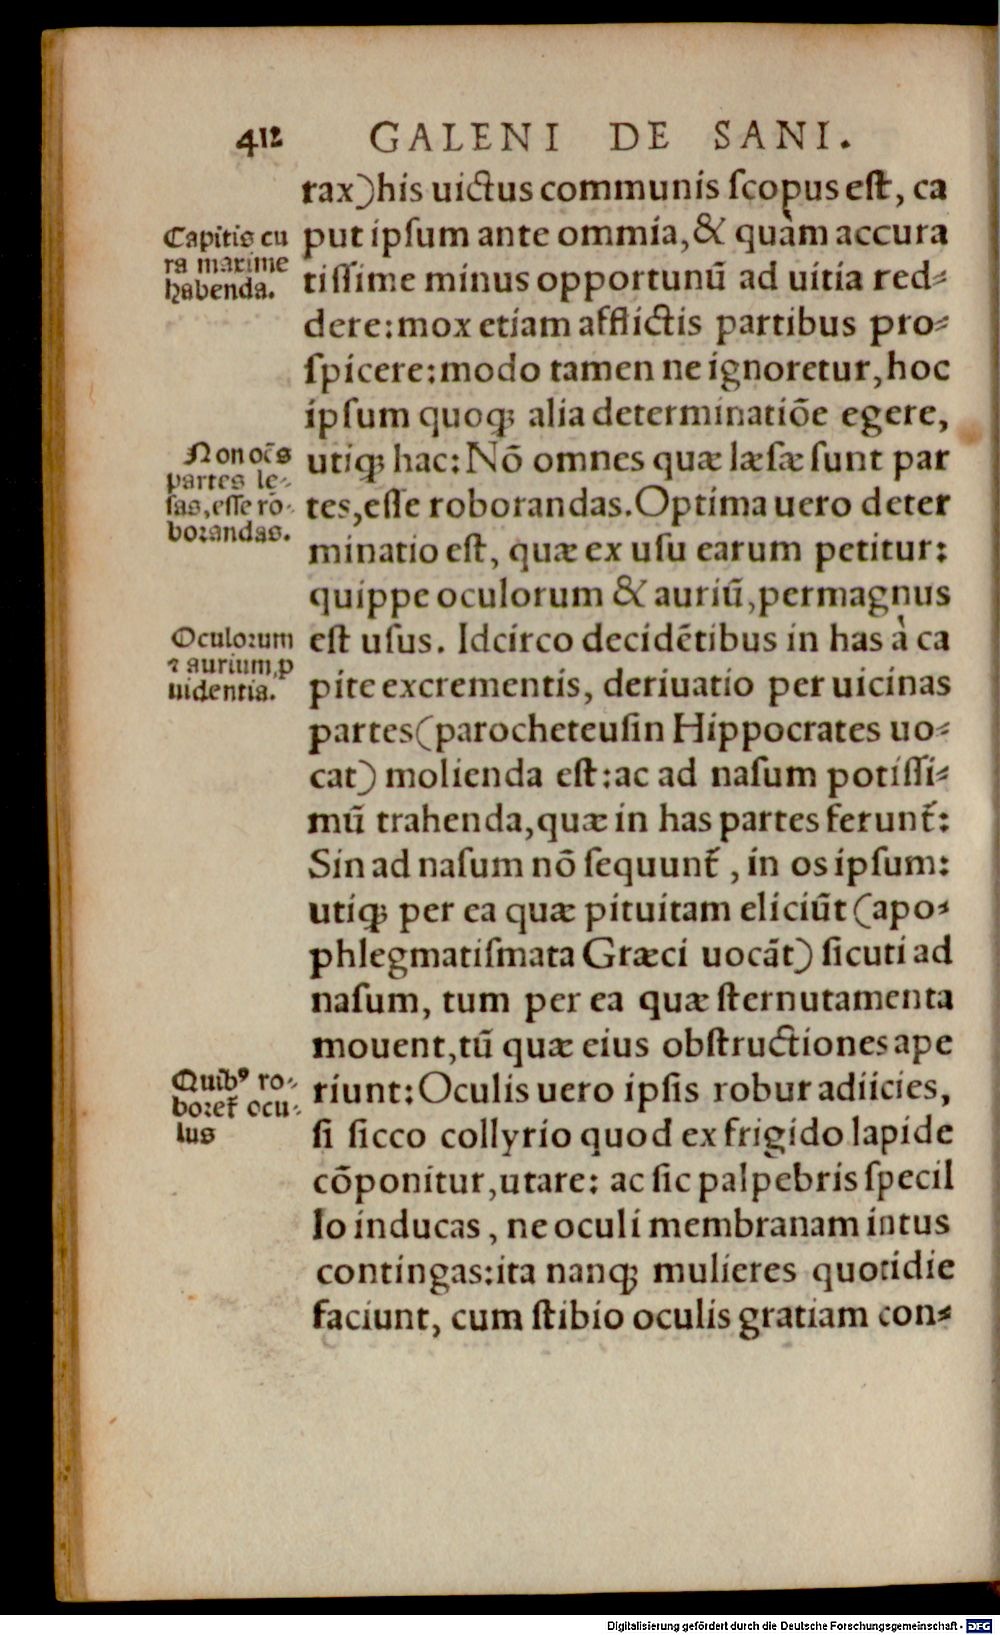 412 GALENI DE SANI.
rax)his uictus communis ſcopus eſt, ca
put ipſum ante ommia,& quàm accura
tiſſime minus opportunũ ad uitia red⸗
dere:mox etiam afflictis partibus pro⸗
ſpicere:modo tamen ne ignoretur,hoc
ipſum quoq; alia determinatiõe egere,
utiq; hac:Nõ omnes quæ læſæ ſunt par
tes,eſſe roborandas.Optima uero deter
minatio eſt, quæ ex uſu earum petitur:
quippe oculorum & auriũ,permagnus
eſt uſus. Idcirco decidẽtibus in has à ca
pite excrementis, deriuatio per uicinas
partes(parocheteuſin Hippocrates uo⸗
cat) molienda eſt:ac ad naſum potiſſi⸗
mũ trahenda,quæ in has partes ferunt᷑:
Sin ad naſum nõ ſequunt᷑ , in os ipſum:
utiq; per ea quæ pituitam eliciũt (apo⸗
phlegmatiſmata Græci uocãt) ſicuti ad
naſum, tum per ea quæ ſternutamenta
mouent,tũ quæ eius obſtructiones ape
riunt:Oculis uero ipſis robur adiicies,
ſi ſicco collyrio quod ex frigido lapide
cõponitur,utare: ac ſic palpebris ſpecil
lo inducas , ne oculi membranam intus
contingas:ita nanq; mulieres quotidie
faciunt, cum ſtibio oculis gratiam con⸗
Capitis cu
ra maxime
habenda.
Non oẽs
partes le⸗
ſas,eſſe ro⸗
boꝛandas.
Oculoꝛum
⁊ aurium,p
uidentia.
Quibꝰ ro⸗
boꝛet᷑ ocu⸗
lus
Digitalisierung gefördert durch die Deutsche Forschungsgemeinschaft - DFG